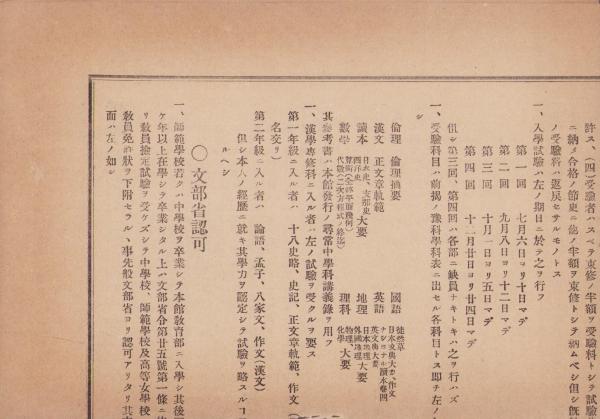 許ス、(四)受驗者ハスベテ束修ノ半額ヲ受驗料トシテ試驗
ニ納メ合格ノ節更ニ他ノ半額ヲ束修トシテ納ムベシ但シ既
ノ受驗料ハ返戾セサルモノトス
一、入學試驗ハ左ノ期日ニ於テ之ヲ行フ
第一回 七月六日ヨリ十日マデ
第二回 九月八日ヨリ十二日マデ
第三回 十月一日ヨリ五日マデ
第四回 十二月廿日ヨリ廿四日マデ
但シ第三回、第四回ハ各部ニ缺員ナキトキハ之ヲ行ハズ
一、受驗科目ハ前揭ノ豫科學科表ニ出セル各科目トス即チ左ノ
シ
倫理 倫理摘要 國語 徒然草 日本文典大要、作文
漢文 正文章軌範 英語 ナショナル讀本卷四 英文典大要
讀本 日本史、支那史 西洋史 大要 地理 日本地理 外國地理 大要
數學 算術(全)幾何(平面) 代數(二次方程式終迄) 理科 物理、化學 大要
其參考書ハ本館發行ノ尋常中學科講義錄ヲ用フ
一、漢學專修科ニ入ル者ハ左ノ試驗ヲ受クルヲ要ス
第一年級ニ入ル者ハ 十八史略、史記、正文章軌範、作文(
名交リ)
第二年級ニ入ル者ハ 論語、孟子、八家文、作文(漢文)
但シ本人ノ經歷ニ就キ其學力ヲ認定シテ試驗ヲ略スルコ
ルヘシ
〇文部省認可
一、師範學校若クハ中學校ヲ卒業シテ本館敎育部ニ入學シ其後
ケ年以上在學シテ卒業シタル上ハ文部省令第廿五號第一條ニ
リ敎員檢定試驗ヲ受ケズシテ中學校、師範學校及高等女學校
敎員免許狀ヲ下附セラル丶事先般文部省ヨリ認可アリタリ其
面ハ左ノ如シ